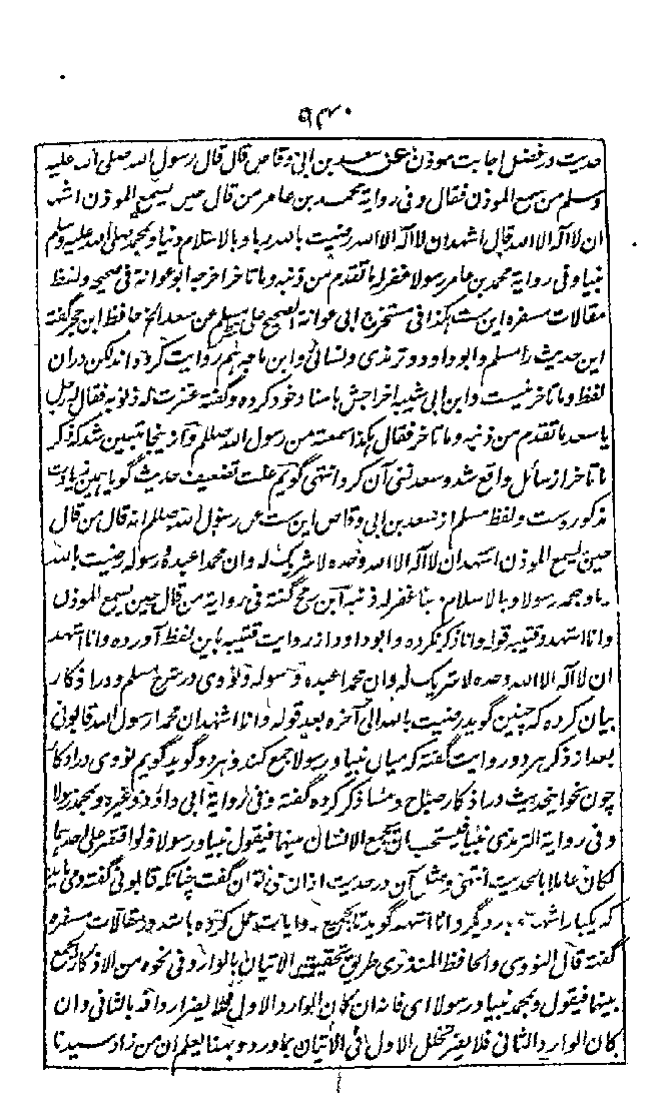 ۹۳۰
حدیث در فضل اجابت موذن عن سعد بن ابی وقاص قال قال رسول الله صلی الله علیه
وسلم من سمع الموذن فقال وفی روایة محمد بن عامر من قال حین یسمع الموذن اشهد
ان لا اله الا الله قال اشهد ان لا اله الا الله رضیت بالله ربا وبالاسلام دینا وبمحمد صلی الله علیه وسلم
نبیا وفی روایة محمد بن عامر رسولا غفر له ما تقدم من ذنبه وما تاخر اخرجه ابو عوانة فی صحیحه ولفظ
مقالات مسفره این ست هکذا فی مستخرج ابی عوانة الصحیح علی مسلم عن سعد الخ حافظ ابن حجر گفته
این حدیث را مسلم وابو داود وترمذی ونسائی وابن ماجه هم روایت کرده اند لکن دران
لفظ وما تاخر نیست وابن ابی شیبه اخراجش باسناد خود کرده وگفته غفرت له ذنوبه فقال له رجل
یا سعد ما تقدم من ذنبه وما تاخر فقال هکذا سمعته من رسول الله صلعم وازینجا متبین شد که ذکر
ما تاخر از سائل واقع شد وسعد نفی آن کرد انتهی گویم علت تضعیف حدیث گویا همین زیادت
مذکورست ولفظ مسلم از سعد بن ابی وقاص این ست عن رسول الله صلعم انه قال من قال
حین یسمع الموذن اشهد ان لا اله الا الله وحده لا شریک له وان محمدا عبده ورسوله رضیت بالله
ربا وبمحمد رسولا وبالاسلام دینا غفر له ذنبه ابن رمح گفته فی روایة من قال حین یسمع الموذن
وانا اشهد وقتیبه قوله وانا ذکر نکرده وابو داود از روایت قتیبه باین لفظ آورده وانا اشهد
ان لا اله الا الله وحده لا شریک له وان محمدا عبده ورسوله ونووی در شرح مسلم ودر اذکار
بیان کرده که چنین گوید رضیت بالله الی آخره بعد قوله وانا اشهد ان محمدا رسول الله قابونی
بعد از ذکر هر دو روایت گفته که میان نبیا ورسولا جمع کند وهر دو گوید گویم نووی در اذکار
چون بخوا اینحدیث در اذکار صباح ومسا ذکر کرده گفته وفی روایة ابی داود وغیره وبمحمد رسولا
وفی روایة الترمذی نبیا فیستحب ان یجمع الانسان بینهما فیقول نبیا ورسولا ولو اقتصر علی احدهما
لکان عاملا بالحدیث انتهی ومثل آن در حدیث اذان می توان گفت چنانکه قابونی گفته ومی باید
که یکبار اشهد وبار دیگر وانا اشهد گوید تا بجمیع روایات عمل کرده باشد ودر مقالات مسفره
گفته قال النووی والحافظ المنذری طریق تحقیق الاتیان بالوارد فی نحوه من الاذکار الجمع
بینهما فیقول وبمحمد نبیا ورسولا ای فانه ان کان الوارد الاول فلا یضر اردافه بالثانی وان
کان الوارد الثانی فلا یضر تخلل الاول فی الاتیان بما ورد وبهذا یعلم ان من زاد سیدنا